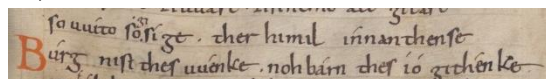 so uuito so sige . ther himil innanthense
Burg nist thes uuenke . noh barn thes io githenke